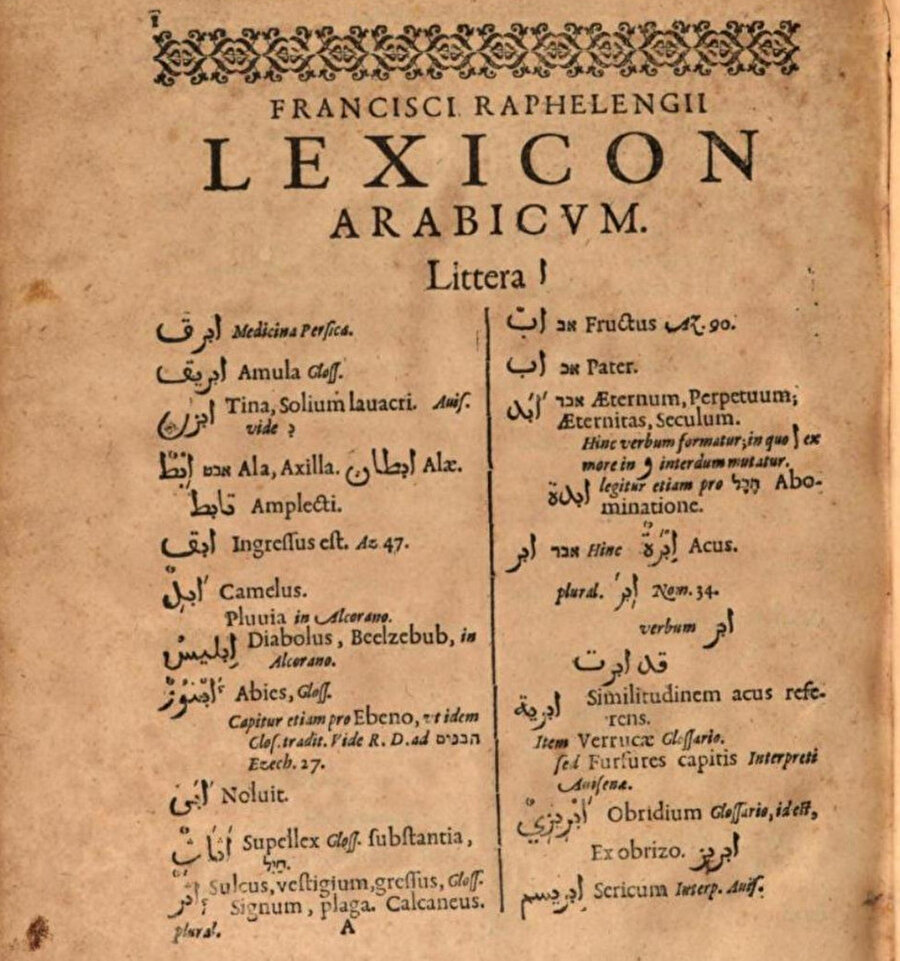 1
FRANCISCI RAPHELENGII
LEXICON
ARABICVM.
Littera ا
ابّ אב Fructus Az. 90.
اب אב Pater.
أبد אבד Æternum, Perpetuum;
Æternitas, Seculum.
Hinc verbum formatur; in quo ا ex
more in و interdum mutatur.
ابدة legitur etiam pro הבל Abo-
minatione.
ابر אבר Hinc إبرة Acus.
plural. إبر Nom. 34.
verbum ابر
قد ابرت
ابرية Similitudinem acus refe-
rens.
Item Verrucæ Glossario.
sed Furfures capitis Interpreti
Auisenæ.
أبريزي Obridium Glossario, id est,
Ex obrizo. ابريز
إبريسم Sericum Interp. Auis.
ابرق Medicina Persica.
ابريق Amula Gloss.
ابزن Tina, Solium lauacri. Auis.
vide ذ
إبط אבט Ala, Axilla. ابطان Alæ.
تابط Amplecti.
ابق Ingressus est. Az 47.
أبل Camelus.
Pluuia in Alcorano.
إبليس Diabolus, Beelzebub, in
Alcorano.
أبنوز Abies, Gloss.
Capitur etiam pro Ebeno, vt idem
Glos. tradit. Vide R. D. ad הבנים
Ezech. 27.
أبى Noluit.
أثاث Supellex Gloss. substantia,
חיל.
أثر Sulcus, vestigium, gressus, Gloss.
Signum, plaga. Calcaneus.
plural. A